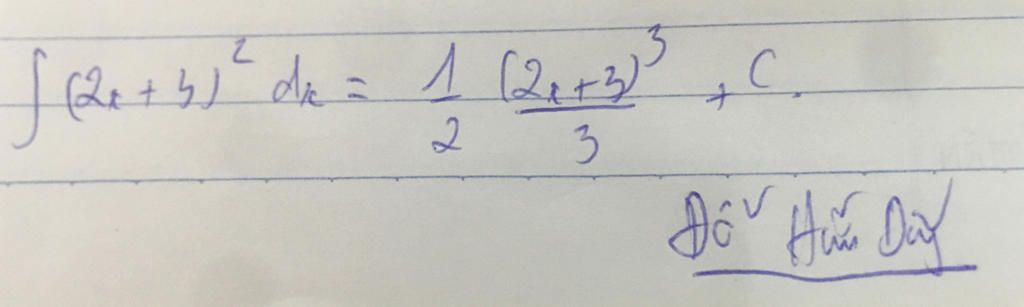 ∫(2x+3)² dx = 1/2 (2x+3)³/3 + C.
Đỗ Hữu Duy